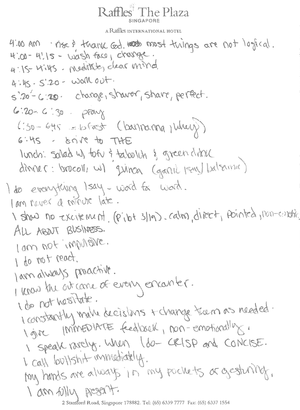 Raffles The Plaza
SINGAPORE
A RAFFLES INTERNATIONAL HOTEL
4:00 am rise & thank God. most things are not logical.
4:00 - 4:15 - wash face, change.
4:15 - 4:45 - meditate, clear mind
4:45 - 5:20 - work out.
5:20 - 6:20 - change, shower, shave, perfect.
6:20 - 6:30 - pray
6:30 - 6:45 - (bananna, whey)
6:45 - drive to THE
lunch: salad w/ tofu & & green drink
dinner: brocoli w/
I do everything I say - word for word.
I am never a minute late.
I show no excitement. calm, direct, pointed, non-
ALL ABOUT BUSINESS.
I am not impulsive.
I do not react.
I am always proactive.
I know the outcome of every encounter.
I do not hesitate.
I constantly make decisions & change them as needed.
I give IMMEDIATE feedback, non-emotionally.
I speak rarely. When I do - CRISP and CONCISE.
I call bullshit immediately.
My hands are always in my pockets or gesturing.
I am fully present.
2 Stamford Road, Singapore 178882. Tel: (65) 6339 7777 Fax: (65) 6337 1554